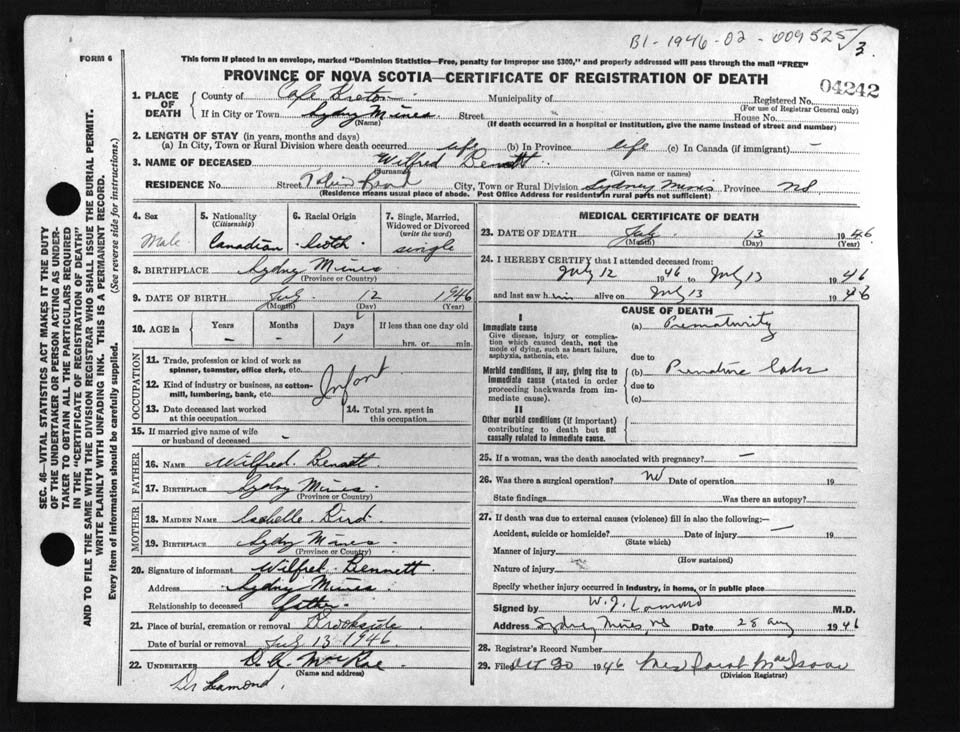 B1-1946-02-009525/3.
FORM 6
This form if placed in an envelope, marked "Dominion Statistics—Free, penalty for improper use $300," and properly addressed will pass through the mail "FREE"
PROVINCE OF NOVA SCOTIA—CERTIFICATE OF REGISTRATION OF DEATH
04242
1. PLACE OF DEATH
County of Cape Breton Municipality of Registered No.
(For use of Registrar General only)
If in City or Town Sydney Mines Street House No.
(Name) (If death occurred in a hospital or institution, give the name instead of street and number)
2. LENGTH OF STAY (in years, months and days)
(a) In City, Town or Rural Division where death occurred life (b) In Province life (c) In Canada (if immigrant) -
3. NAME OF DECEASED Wilfred Bennett
(Surname) (Given name or names)
RESIDENCE No. Street Road City, Town or Rural Division Sydney Mines Province NS
(Residence means usual place of abode. Post Office Address for residents in rural parts not sufficient)
4. Sex
Male
5. Nationality
(Citizenship)
Canadian
6. Racial Origin
Scotch
7. Single, Married,
Widowed or Divorced
(write the word)
single
8. BIRTHPLACE Sydney Mines
(Province or Country)
9. DATE OF BIRTH July 12 1946
(Month) (Day) (Year)
10. AGE in
Years Months Days If less than one day old
- - 1 hrs. or min.
OCCUPATION
11. Trade, profession or kind of work as
spinner, teamster, office clerk, etc.
12. Kind of industry or business, as cotton-
mill, lumbering, bank, etc.
Infant
13. Date deceased last worked
at this occupation
14. Total yrs. spent in
this occupation
15. If married give name of wife
or husband of deceased -
FATHER
16. NAME Wilfred Bennett
17. BIRTHPLACE Sydney Mines
(Province or Country)
MOTHER
18. MAIDEN NAME Bird
19. BIRTHPLACE Sydney Mines
(Province or Country)
20. Signature of informant Wilfred Bennett
Address Sydney Mines
Relationship to deceased father
21. Place of burial, cremation or removal Brookside
Date of burial or removal July 13 1946
22. UNDERTAKER D.A. MacRae
(Name and address)
Dr Leamond,
MEDICAL CERTIFICATE OF DEATH
23. DATE OF DEATH July 13 1946
(Month) (Day) (Year)
24. I HEREBY CERTIFY that I attended deceased from:
July 12 1946 to July 13 1946
and last saw him alive on July 13 1946
CAUSE OF DEATH
I
Immediate cause
Give disease, injury or complica-
tion which caused death, not the
mode of dying, such as heart failure,
asphyxia, asthenia, etc.
(a) Prematurity
due to
Morbid conditions, if any, giving rise to
immediate cause (stated in order
proceeding backwards from im-
mediate cause).
(b) Premature labor
due to
(c)
II
Other morbid conditions (if important)
contributing to death but not
causally related to immediate cause.
25. If a woman, was the death associated with pregnancy? -
26. Was there a surgical operation? no Date of operation 19
State findings Was there an autopsy?
27. If death was due to external causes (violence) fill in also the following:—
Accident, suicide or homicide? Date of injury - 19
(State which)
Manner of injury
(How sustained)
Nature of injury
Specify whether injury occurred in industry, in home, or in public place
Signed by W.J. M.D.
Address Sydney Mines, NS Date 28 Aug 1946
28. Registrar's Record Number
29. Filed Oct 30 1946 Mrs Sarah MacIsaac
(Division Registrar)
SEC. 46—VITAL STATISTICS ACT MAKES IT THE DUTY
OF THE UNDERTAKER OR PERSON ACTING AS UNDER-
TAKER TO OBTAIN ALL THE PARTICULARS REQUIRED
IN THE "CERTIFICATE OF REGISTRATION OF DEATH"
AND TO FILE THE SAME WITH THE DIVISION REGISTRAR WHO SHALL ISSUE THE BURIAL PERMIT.
WRITE PLAINLY WITH UNFADING INK. THIS IS A PERMANENT RECORD.
Every item of information should be carefully supplied. (See reverse side for instructions.)